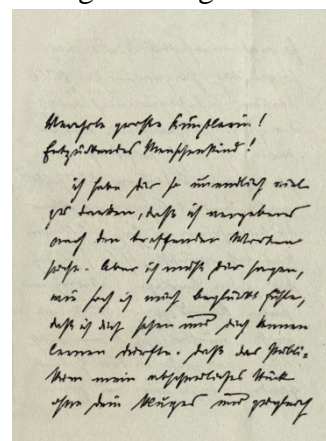 Verehrte große Künstlerin!
Entzückendes Menschenkind!
ich habe Dir so unendlich viel
zu danken, daß ich vergebens
nach den treffenden Worten
suche. Aber ich muß Dir sagen,
wie hoch ich mich beglückt fühle,
daß ich Dich sehen und Dich kennen
lernen durfte. Daß das Publi-
kum mein abscheuliches Stück
ohne Dein kluges und zugleich